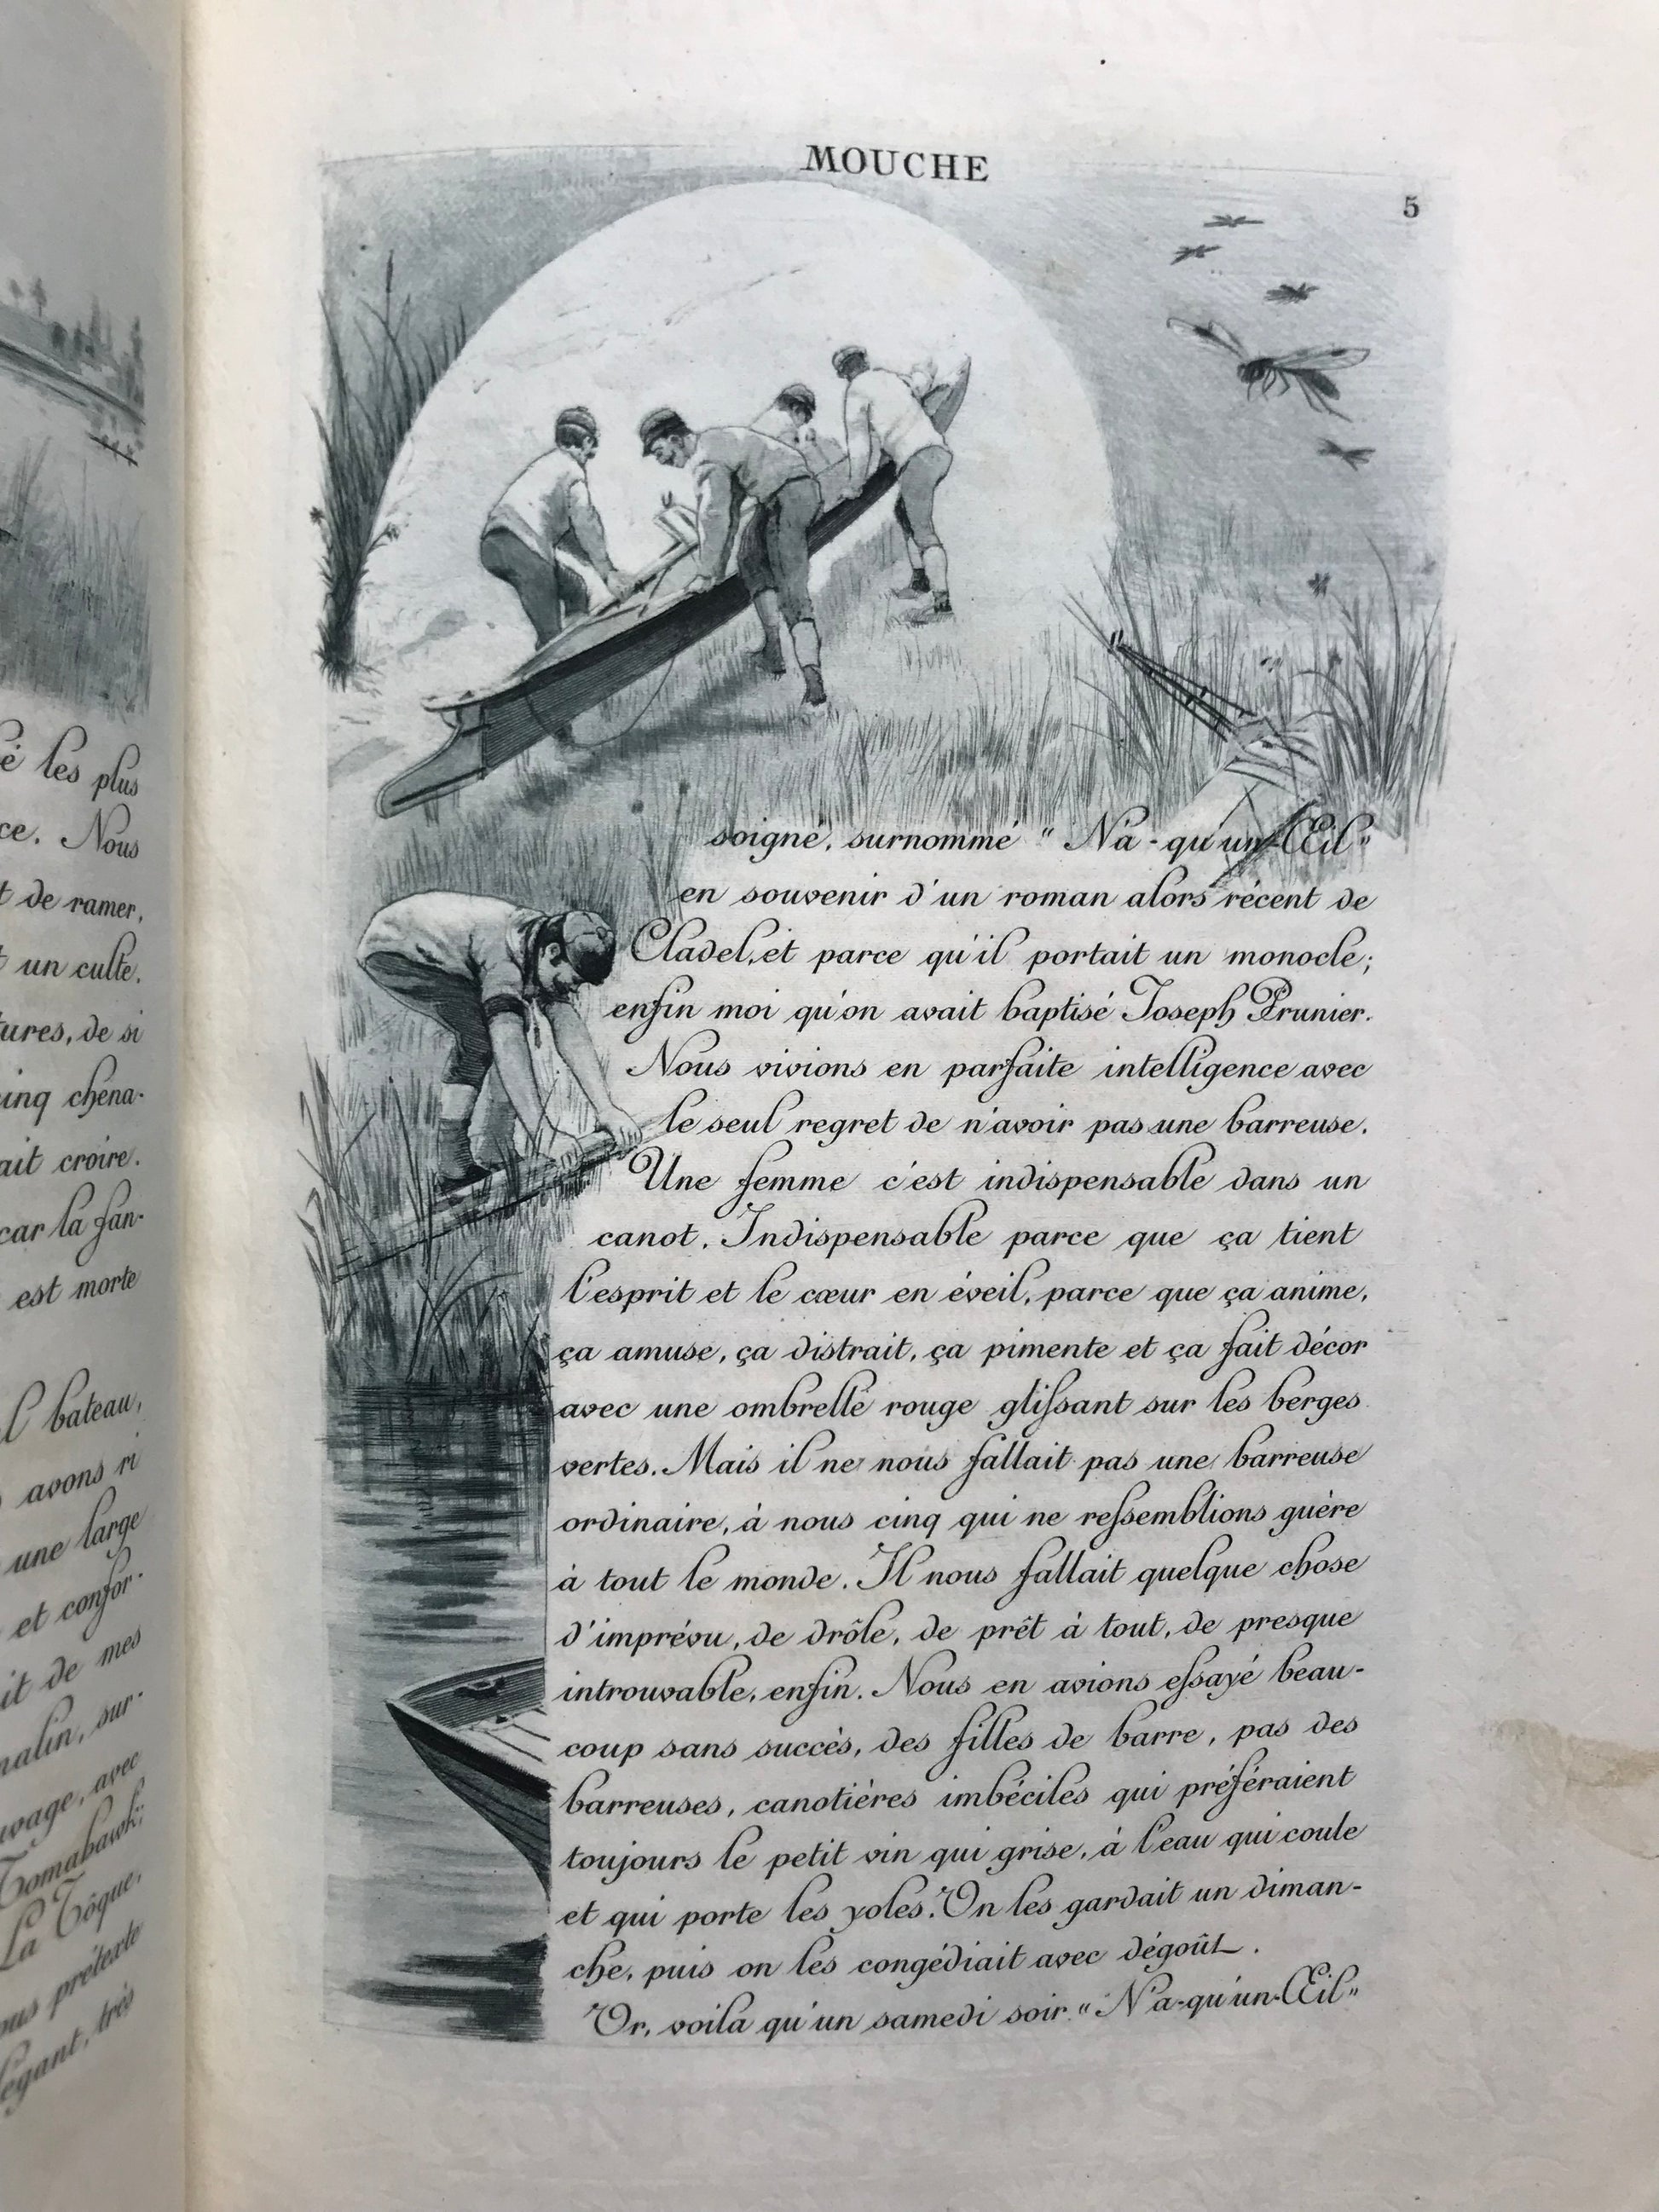 é les plus
ce. Nous
t de ramer,
t un culte.
tures, de si
cinq chéna-
ait croire.
car la fan-
est morte
l bateau,
avons ri
une large
et confor-
it de mes
malin, sur-
uvage, avec
Tomahawk;
La Tôque,
ous prétexte
légant, très
MOUCHE
5
soigné, surnommé "N'a-qu'un-Œil"
en souvenir d'un roman alors récent de
Cladel, et parce qu'il portait un monocle;
enfin moi qu'on avait baptisé Joseph Prunier.
Nous vivions en parfaite intelligence avec
le seul regret de n'avoir pas une barreuse.
Une femme c'est indispensable dans un
canot. Indispensable parce que ça tient
l'esprit et le cœur en éveil, parce que ça anime,
ça amuse, ça distrait, ça pimente et ça fait décor
avec une ombrelle rouge gliſsant sur les berges
vertes. Mais il ne nous fallait pas une barreuse
ordinaire, à nous cinq qui ne reſsemblions guère
à tout le monde. Il nous fallait quelque chose
d'imprévu, de drôle, de prêt à tout, de presque
introuvable, enfin. Nous en avions eſsayé beau-
coup sans succès, des filles de barre, pas des
barreuses, canotières imbéciles qui préféraient
toujours le petit vin qui grise, à l'eau qui coule
et qui porte les yoles. On les gardait un diman-
che, puis on les congédiait avec dégoût.
Or, voila qu'un samedi soir "N'a-qu'un-Œil"